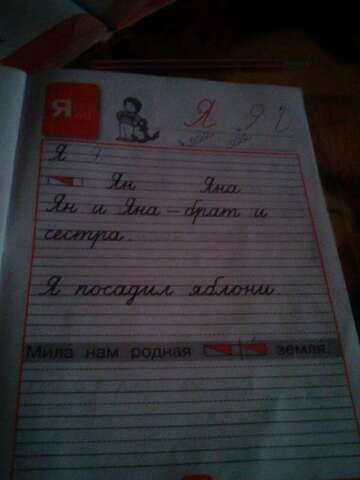 Я
Я Я
Я
Ян Яна
Ян и Яна - брат и
сестра.
Я посадил яблони
Мила нам родная земля.